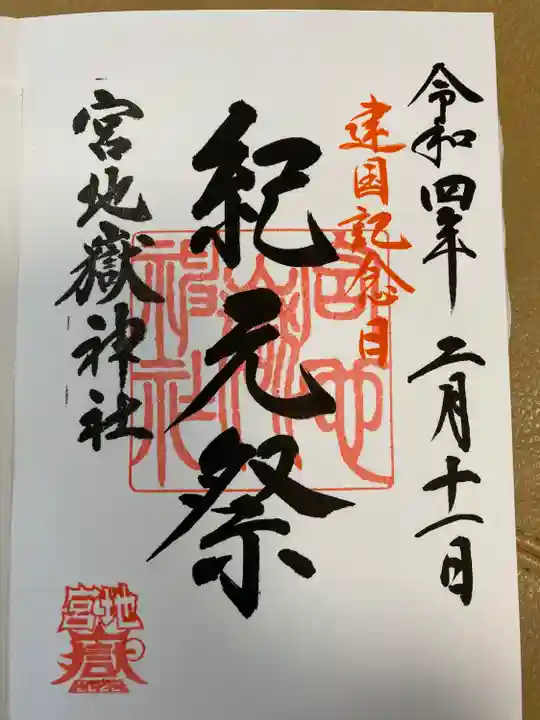 令和四年二月十一日
建国記念日
紀元祭
宮地嶽神社
宮地嶽神社
宮地嶽